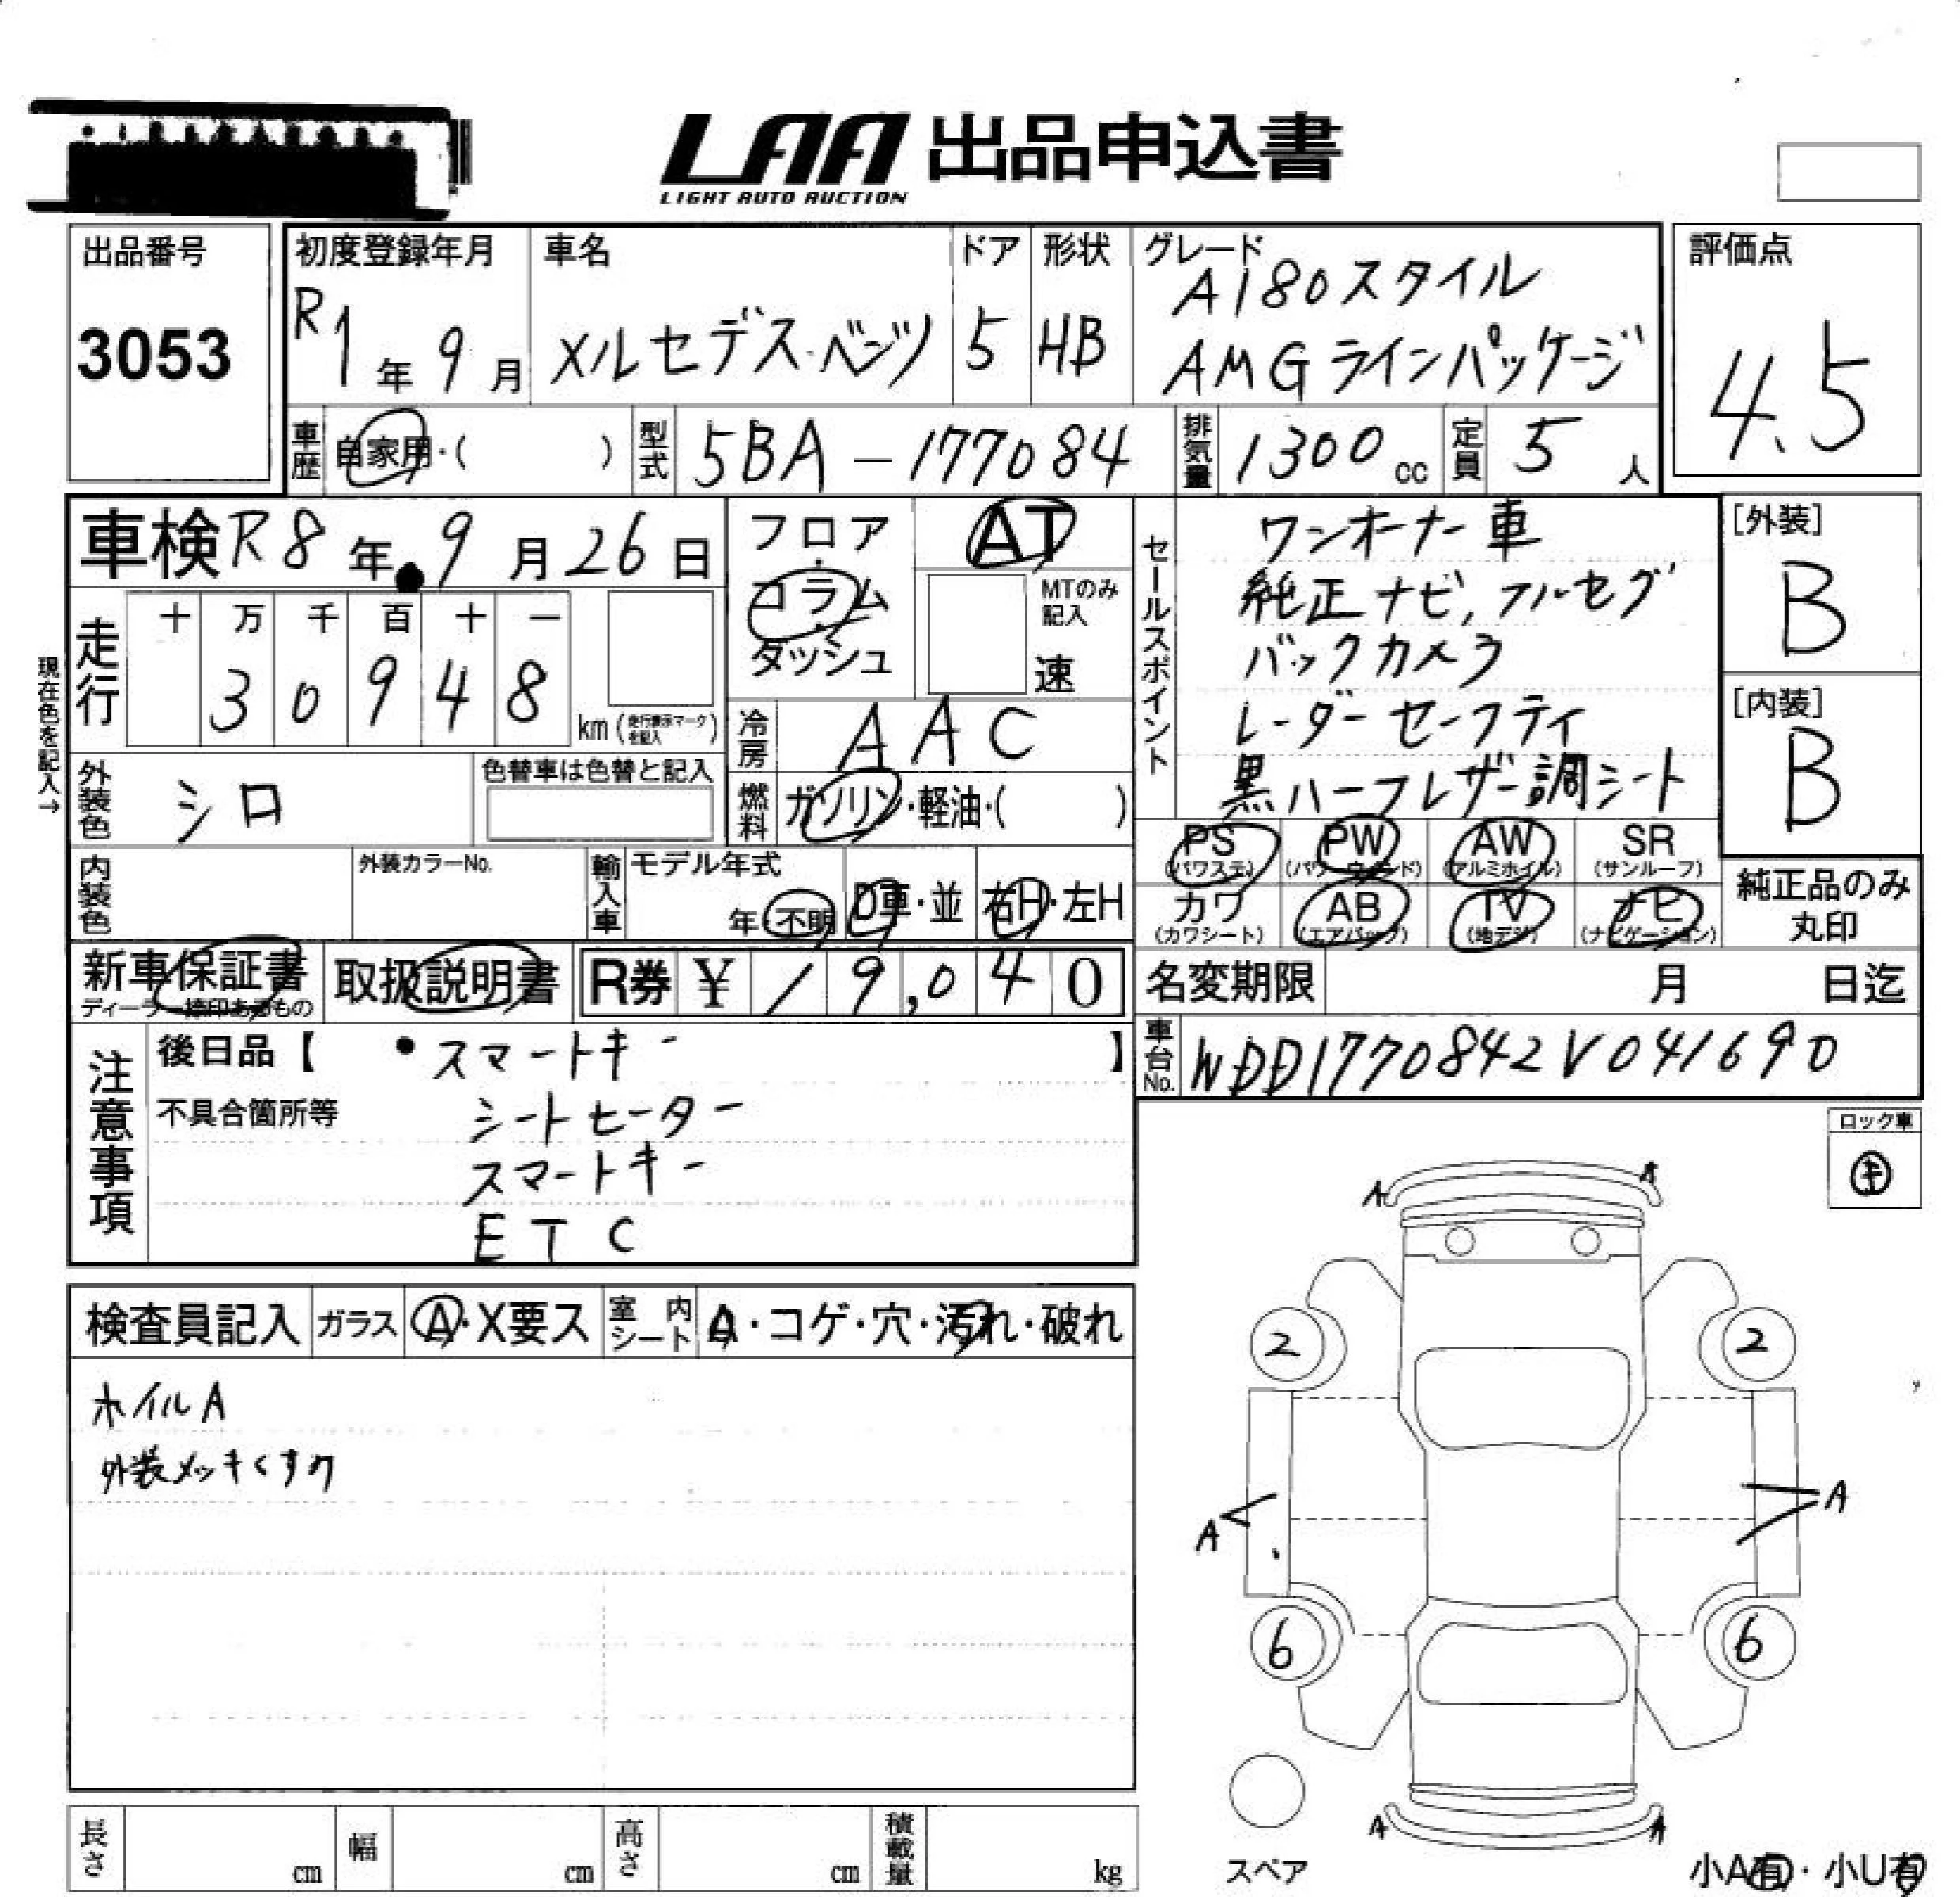 LAA 出品申込書
LIGHT AUTO AUCTION
出品番号
3053
初度登録年月
R1年 9月
車名
メルセデス・ベンツ
ドア
5
形状
HB
グレード
A180スタイル
AMGラインパッケージ
評価点
4.5
車歴 自家用・( )
型式 5BA-177084
排気量 1300cc
定員 5人
車検 R8年 9月 26日
現在色を記入→
走行
十 万 千 百 十 一
3 0 9 4 8
km (走行表示マークを記入)
フロア・コラム・ダッシュ
AT
MTのみ記入
速
冷房 AAC
燃料 ガソリン・軽油・( )
外装色 シロ
色替車は色替と記入
内装色
外装カラーNo.
輸入車
モデル年式
年・不明
D車・並
右H・左H
セールスポイント
ワンオーナー車
純正ナビ,フルセグ
バックカメラ
レーダーセーフティ
黒ハーフレザー調シート
[外装]
B
[内装]
B
PS (パワステ)
PW (パワーウィンド)
AW (アルミホイル)
SR (サンルーフ)
カワ (カワシート)
AB (エアバック)
TV (地デジ)
ナビ (ナビゲーション)
純正品のみ
丸印
新車保証書
ディーラー捺印あるもの
取扱説明書
R券 ¥ 19,040
名変期限 月 日迄
車台No. WDD1770842V041690
注意事項
後日品【 ・スマートキー 】
不具合箇所等
シートヒーター
スマートキー
ETC
ロック車
キ
検査員記入
ガラス A・X要ス
室内シート
・コゲ・穴・汚れ・破れ
ホイルA
外装メッキくすみ
A A
2 2
A A
6 6
A A
スペア
小A有・小U有
長さ cm
幅 cm
高さ cm
積載量 kg